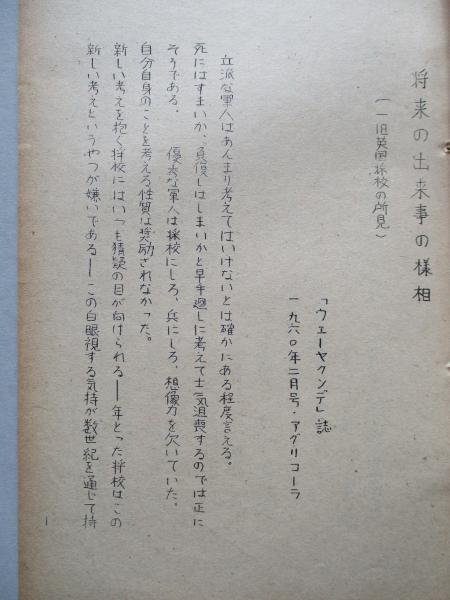 将来の出来事の様相
(一旧英国将校の所見)
「ウェーヤクンデ」誌
一九六〇年二月号・アグリコーラ
立派な軍人はあんまり考えてはいけないとは確かにある程度言える。
死にはすまいか、負傷しはしまいかと早手廻しに考えて士気沮喪するのでは正に
そうである。 優秀な軍人は将校にしろ、兵にしろ、想像力を欠いていた。
自分自身のことを考える性質は奨励されなかった。
新しい考えを抱く将校にはいつも猜疑の目が向けられる——年とった将校はこの
新しい考えというやつが嫌いである——この白眼視する気持が数世紀を通じて持
1